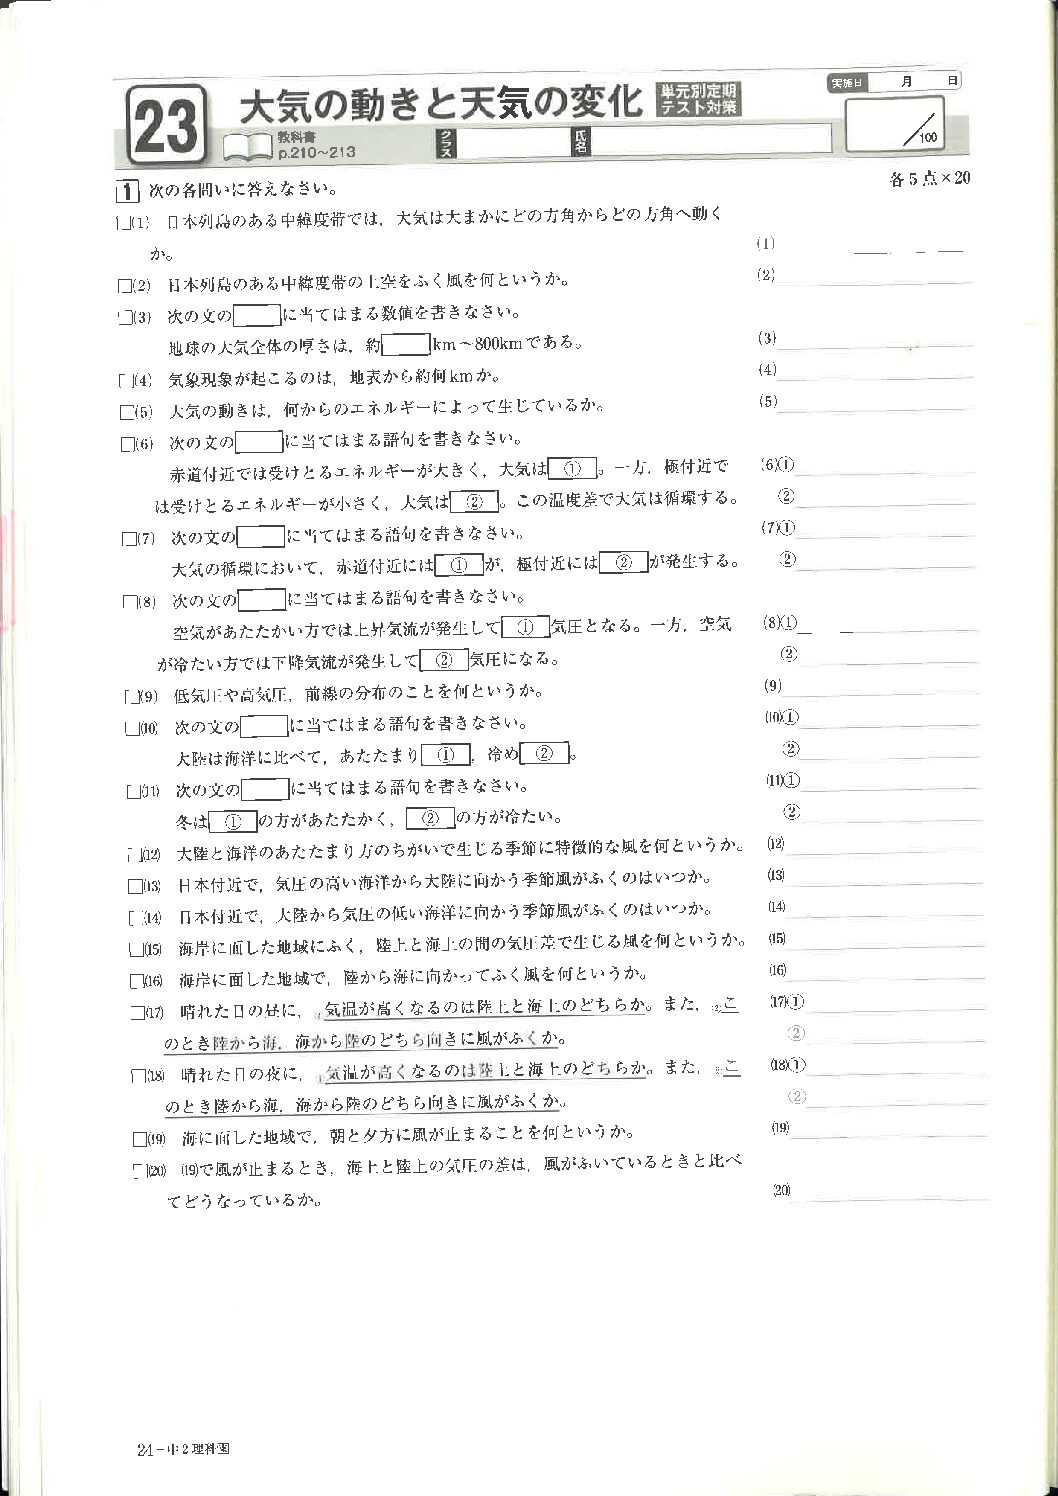 23 大気の動きと天気の変化 単元別定期テスト対策
実施日 月 日
教科書 p.210～213
クラス 氏名 /100
1 次の各問いに答えなさい。 各5点×20
□(1) 日本列島のある中緯度帯では，大気は大まかにどの方角からどの方角へ動く
か。
(1)
□(2) 日本列島のある中緯度帯の上空をふく風を何というか。 (2)
□(3) 次の文の□に当てはまる数値を書きなさい。
地球の大気全体の厚さは，約□km～800kmである。 (3)
□(4) 気象現象が起こるのは，地表から約何kmか。 (4)
□(5) 大気の動きは，何からのエネルギーによって生じているか。 (5)
□(6) 次の文の□に当てはまる語句を書きなさい。
赤道付近では受けとるエネルギーが大きく，大気は①。一方，極付近で (6)①
は受けとるエネルギーが小さく，大気は②。この温度差で大気は循環する。 ②
□(7) 次の文の□に当てはまる語句を書きなさい。 (7)①
大気の循環において，赤道付近には①が，極付近には②が発生する。 ②
□(8) 次の文の□に当てはまる語句を書きなさい。
空気があたたかい方では上昇気流が発生して①気圧となる。一方，空気 (8)①
が冷たい方では下降気流が発生して②気圧になる。 ②
□(9) 低気圧や高気圧，前線の分布のことを何というか。 (9)
□(10) 次の文の□に当てはまる語句を書きなさい。 (10)①
大陸は海洋に比べて，あたたまり①，冷め②。 ②
□(11) 次の文の□に当てはまる語句を書きなさい。 (11)①
冬は①の方があたたかく，②の方が冷たい。 ②
□(12) 大陸と海洋のあたたまり方のちがいで生じる季節に特徴的な風を何というか。 (12)
□(13) 日本付近で，気圧の高い海洋から大陸に向かう季節風がふくのはいつか。 (13)
□(14) 日本付近で，大陸から気圧の低い海洋に向かう季節風がふくのはいつか。 (14)
□(15) 海岸に面した地域にふく，陸上と海上の間の気圧差で生じる風を何というか。 (15)
□(16) 海岸に面した地域で，陸から海に向かってふく風を何というか。 (16)
□(17) 晴れた日の昼に，①気温が高くなるのは陸上と海上のどちらか。また，②こ (17)①
のとき陸から海，海から陸のどちら向きに風がふくか。 ②
□(18) 晴れた日の夜に，①気温が高くなるのは陸上と海上のどちらか。また，②こ (18)①
のとき陸から海，海から陸のどちら向きに風がふくか。 ②
□(19) 海に面した地域で，朝と夕方に風が止まることを何というか。 (19)
□(20) (19)で風が止まるとき，海上と陸上の気圧の差は，風がふいているときと比べ
てどうなっているか。 (20)
24－中2理科